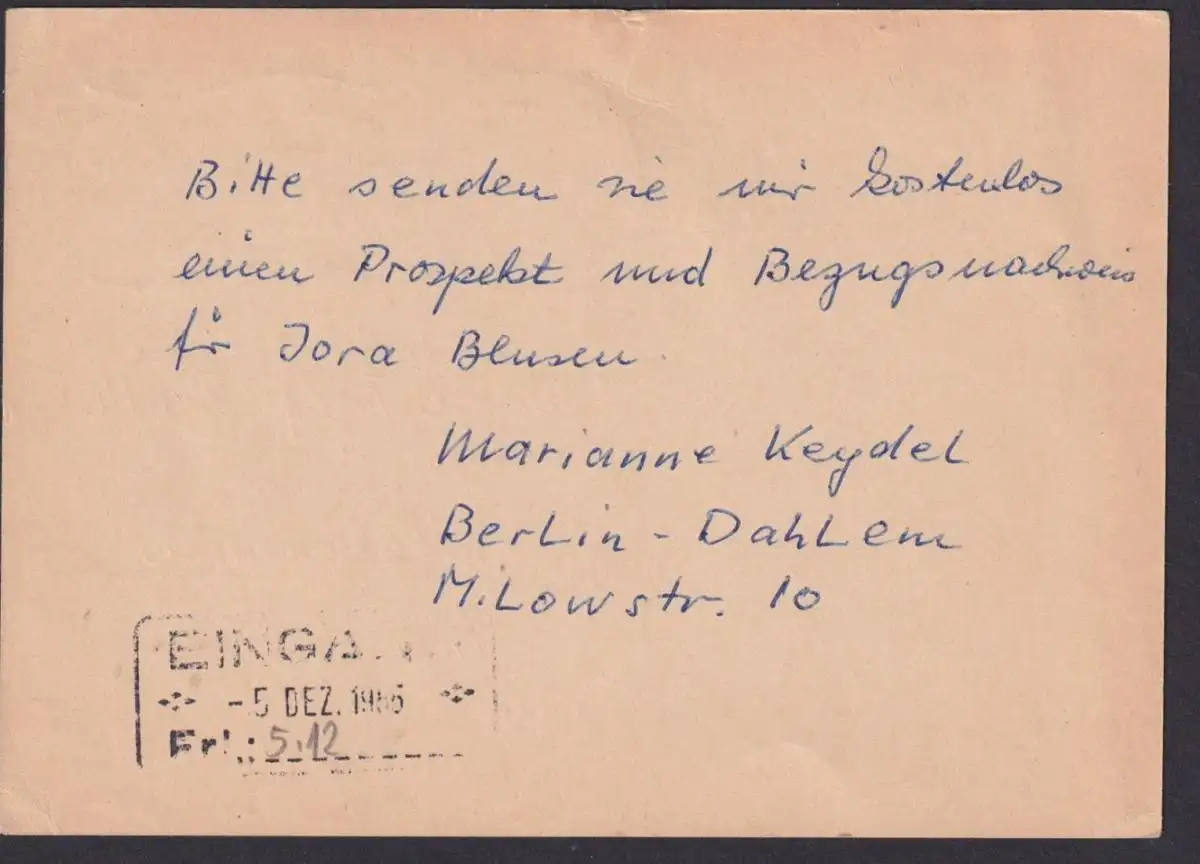 Bitte senden sie mir kostenlos
einen Prospekt und Bezugsnachweis
für Jora Blusen.
Marianne Keydel
Berlin - Dahlem
Milowstr. 10
EINGA
-5 DEZ. 1966
Erl.: 5.12